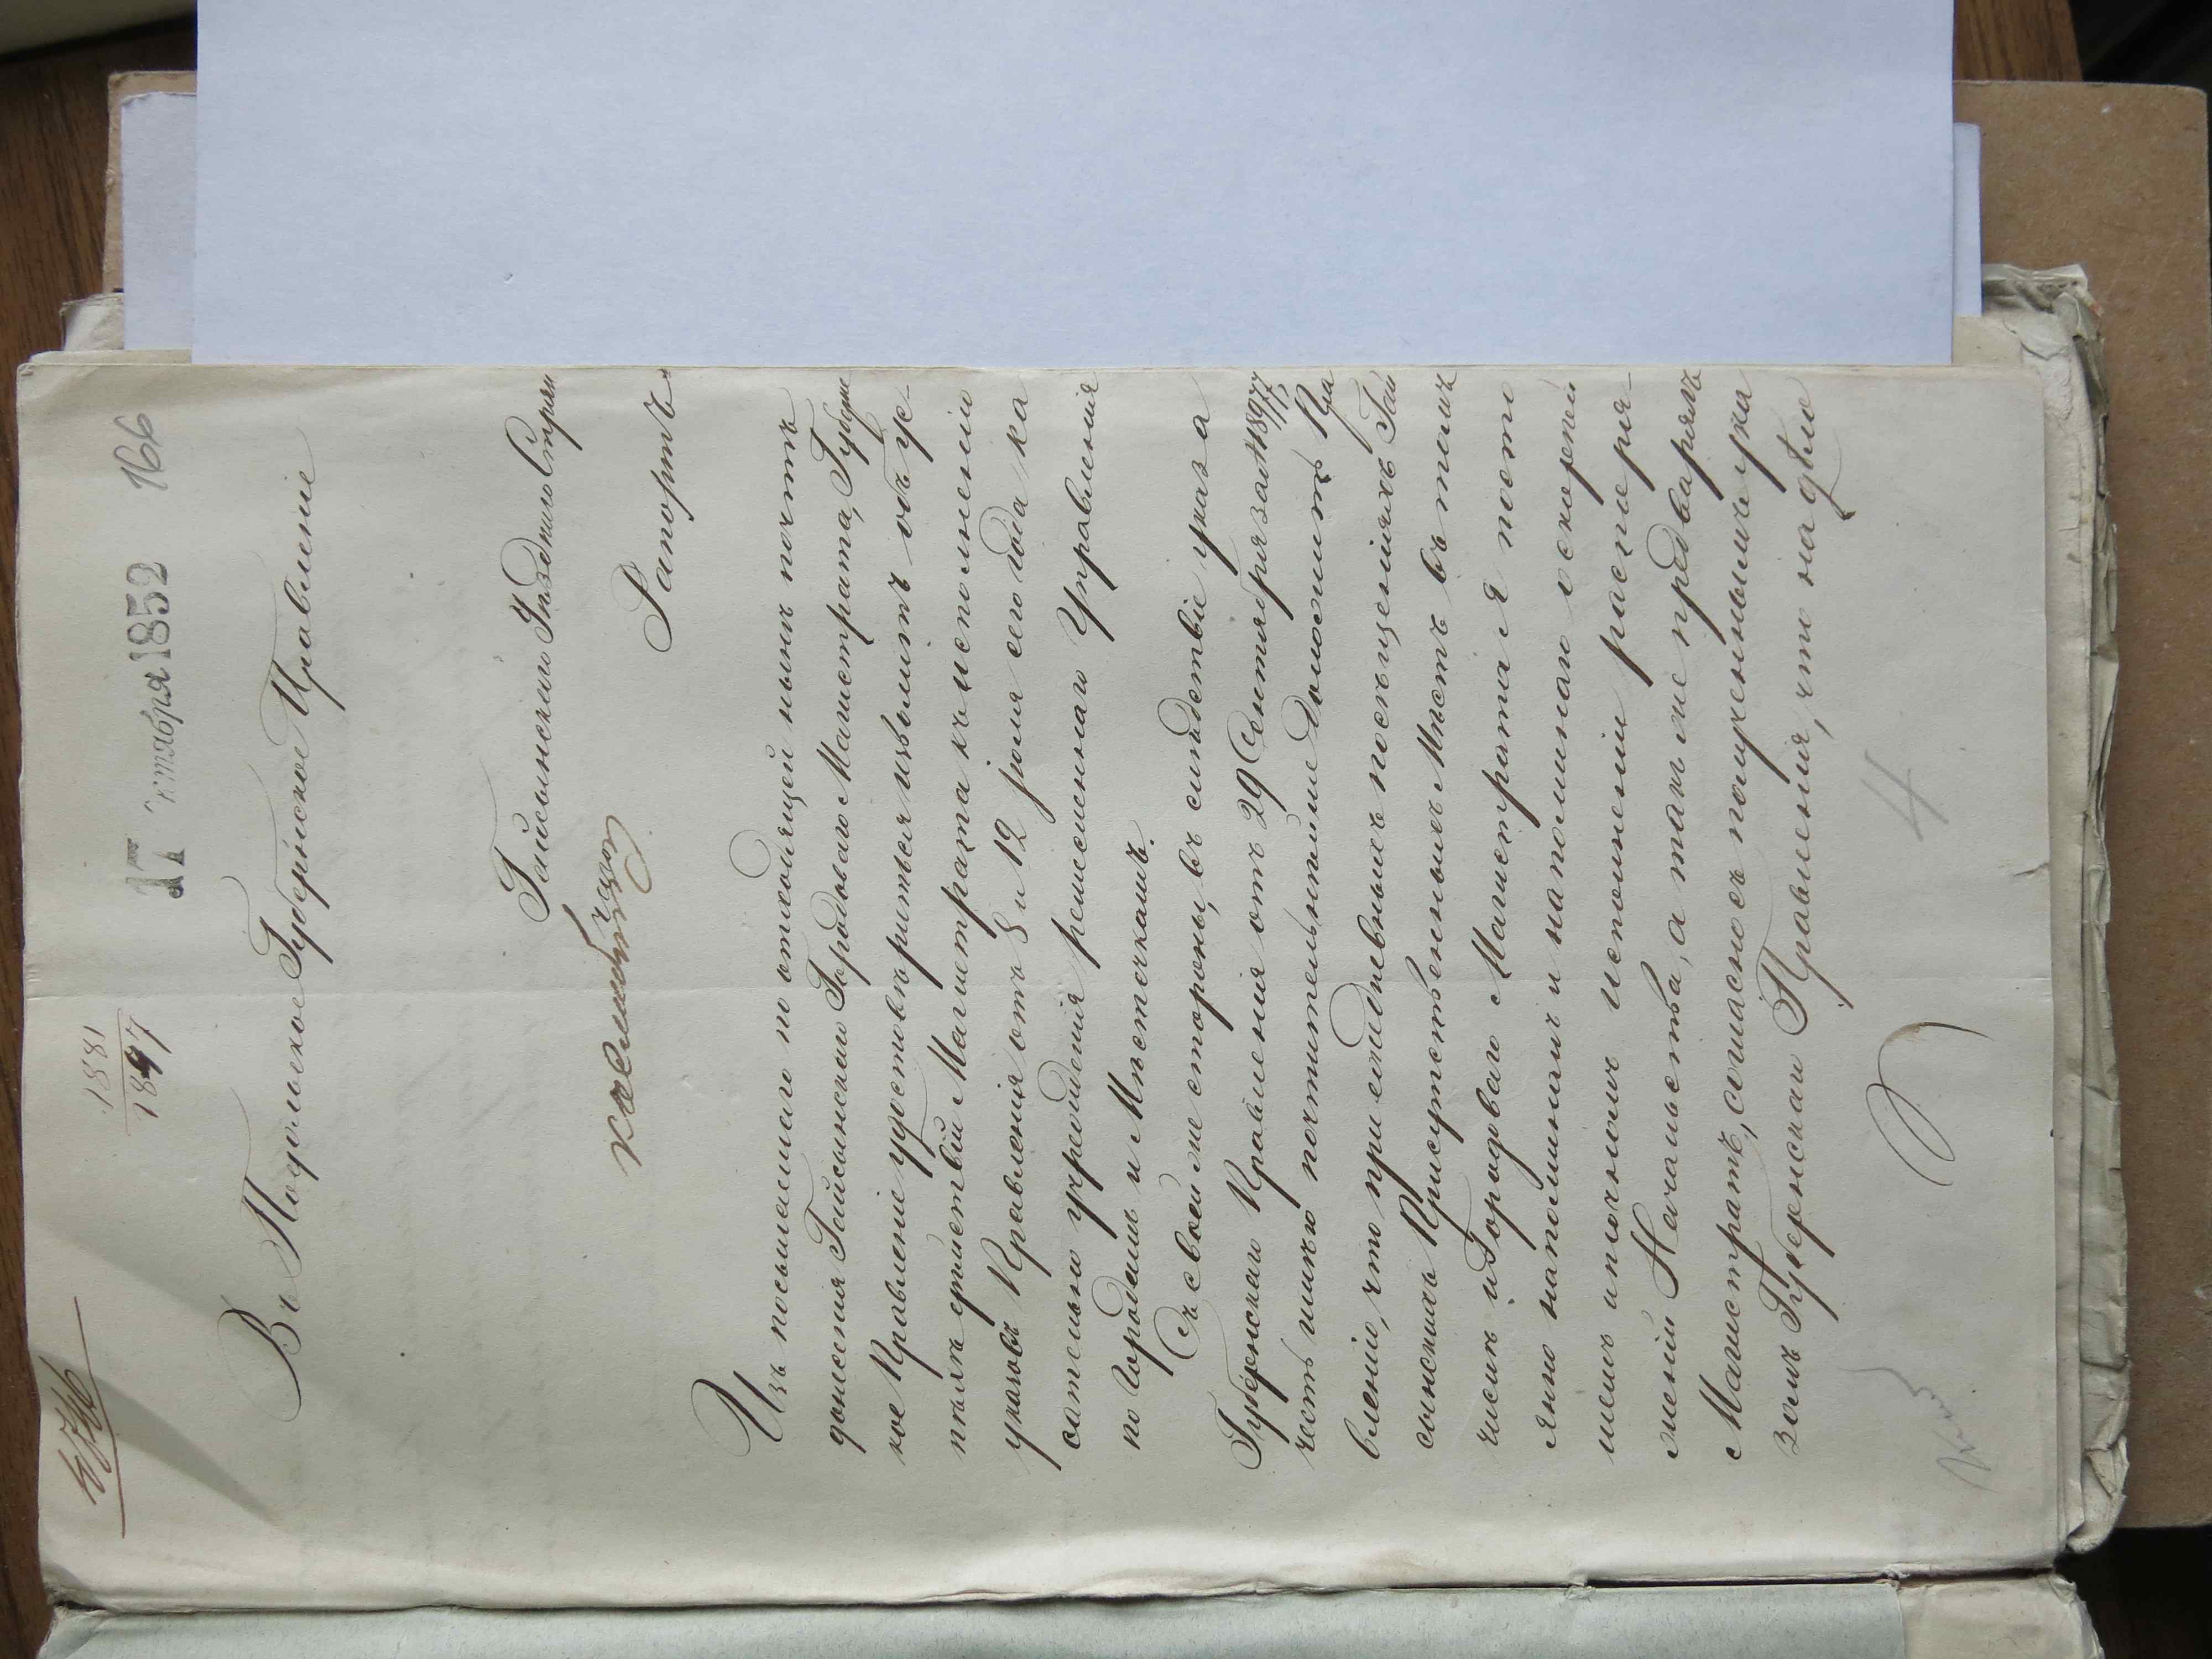 166
17 октября 1852
1881
1897
Въ Подольское Губернское Правленіе
Гайсынскаго Уѣзднаго Стряп
Рапортъ
Изъ посылаемаго по отходящей нынѣ почтѣ
донесенія Гайсынскаго Городоваго Магистрата, Губернс
кое Правленіе удостовѣриться изволитъ объ ус-
пѣхѣ Магистрата къ исполненію
указовъ Правленія отъ 8 и 12 іюля сего года ка
сательно учрежденія ремесленнаго Управленія
по городамъ и Мѣстечкамъ.
Съ своей же стороны, въ слѣдствіе указа
Губернскаго Правленія отъ 29 Сентября за № 18977,
честь имѣю почтительнѣйше доложить Пра
вленію, что при ежедневныхъ посѣщеніяхъ Гай
сынскихъ Присутственныхъ Мѣстъ въ томъ
числѣ и Городоваго Магистрата я посто
янно напоминалъ и напоминаю о скорѣй
шемъ и точномъ исполненіи распоря-
женій Начальства, а такъ же предварялъ
Магистратъ, согласно съ полученнымъ ука
зомъ Губернскаго Правленія, что на дѣло
4